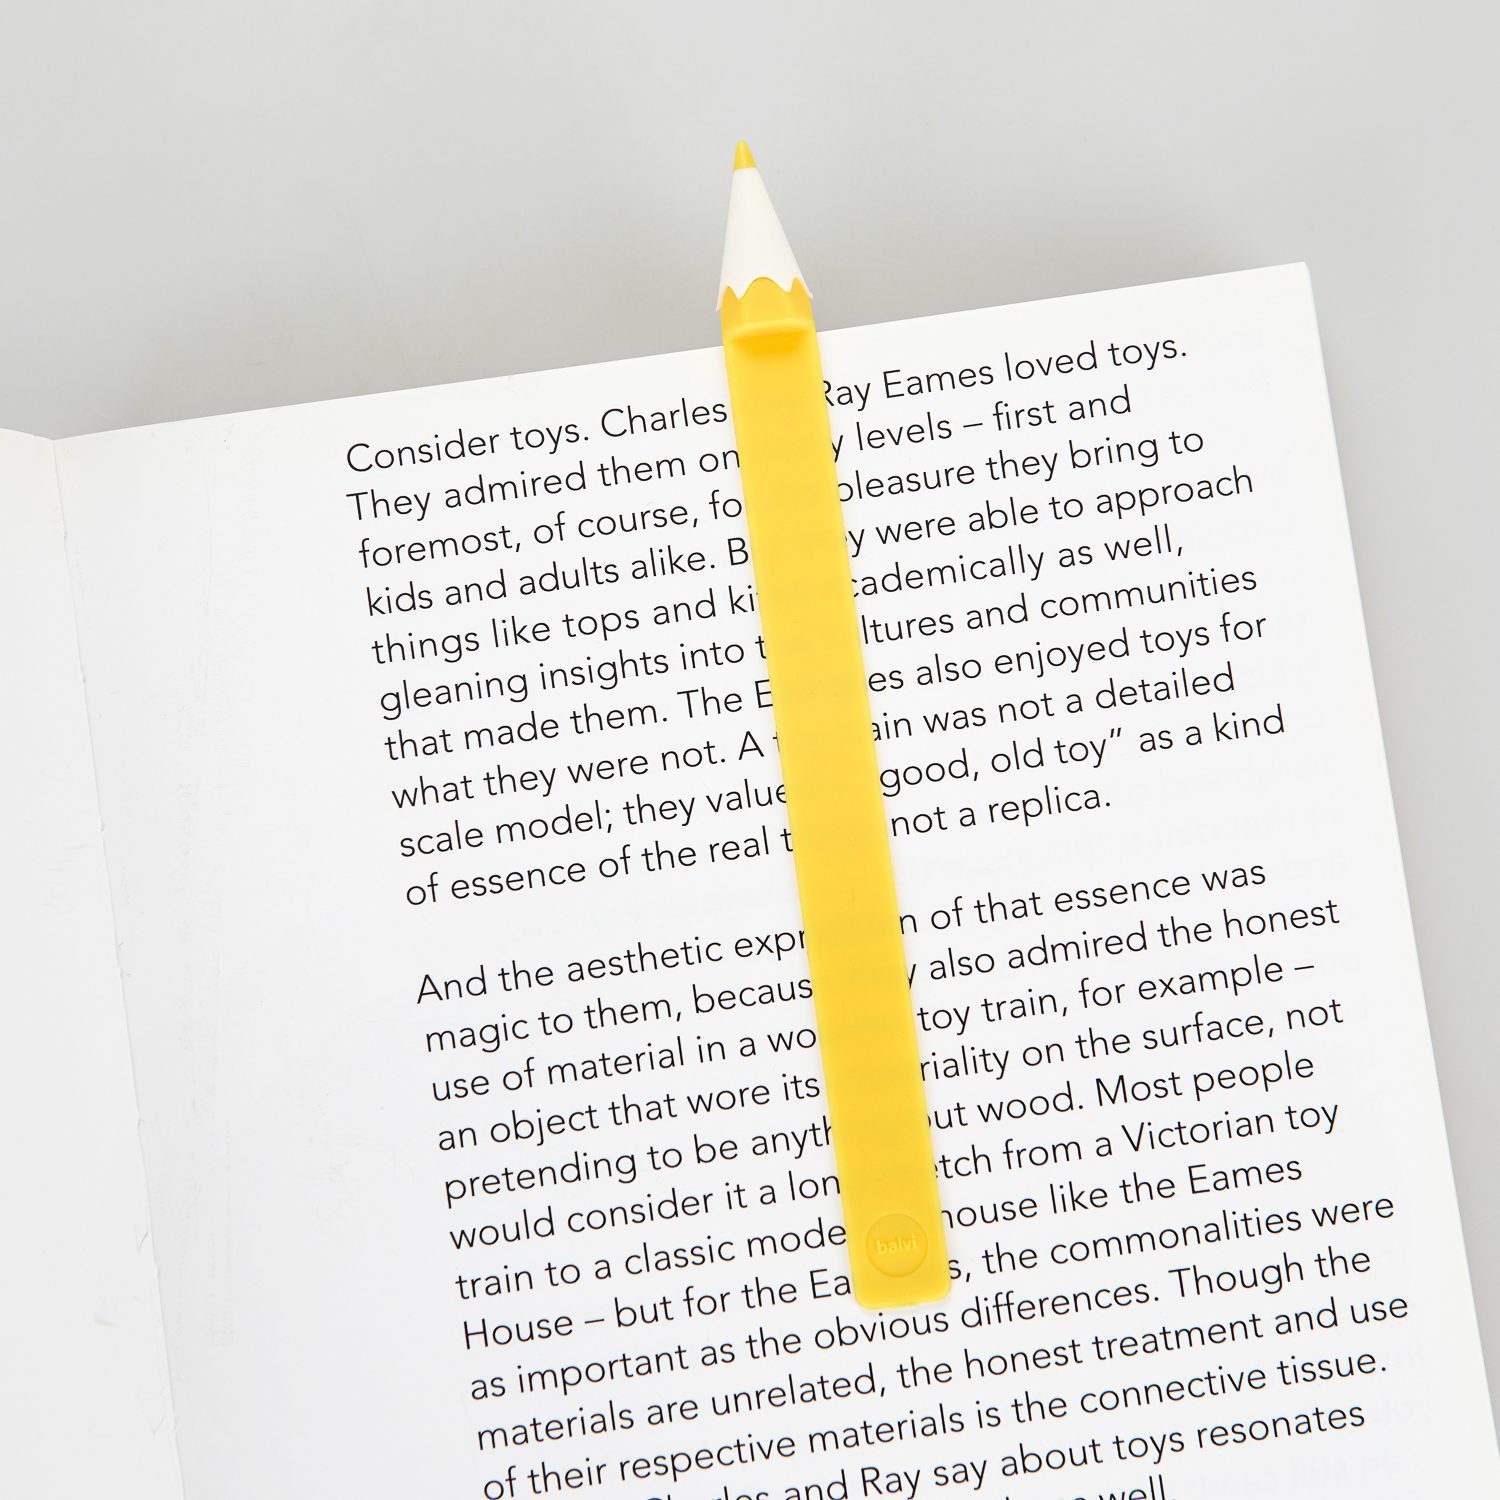 Consider toys. Charles Ray Eames loved toys.
They admired them on levels – first and
foremost, of course, pleasure they bring to
kids and adults alike. were able to approach
things like tops and as well,
gleaning insights into and communities
that made them. The also enjoyed toys for
what they were not. A was not a detailed
scale model; they good, old toy” as a kind
of essence of the real not a replica.
And the aesthetic of that essence was
magic to them, also admired the honest
use of material in a toy train, for example –
an object that wore its on the surface, not
pretending to be wood. Most people
would consider it a from a Victorian toy
train to a classic house like the Eames
House – but for the the commonalities were
as important as the obvious differences. Though the
materials are unrelated, the honest treatment and use
of their respective materials is the connective tissue.
and Ray say about toys resonates
well.
balvi